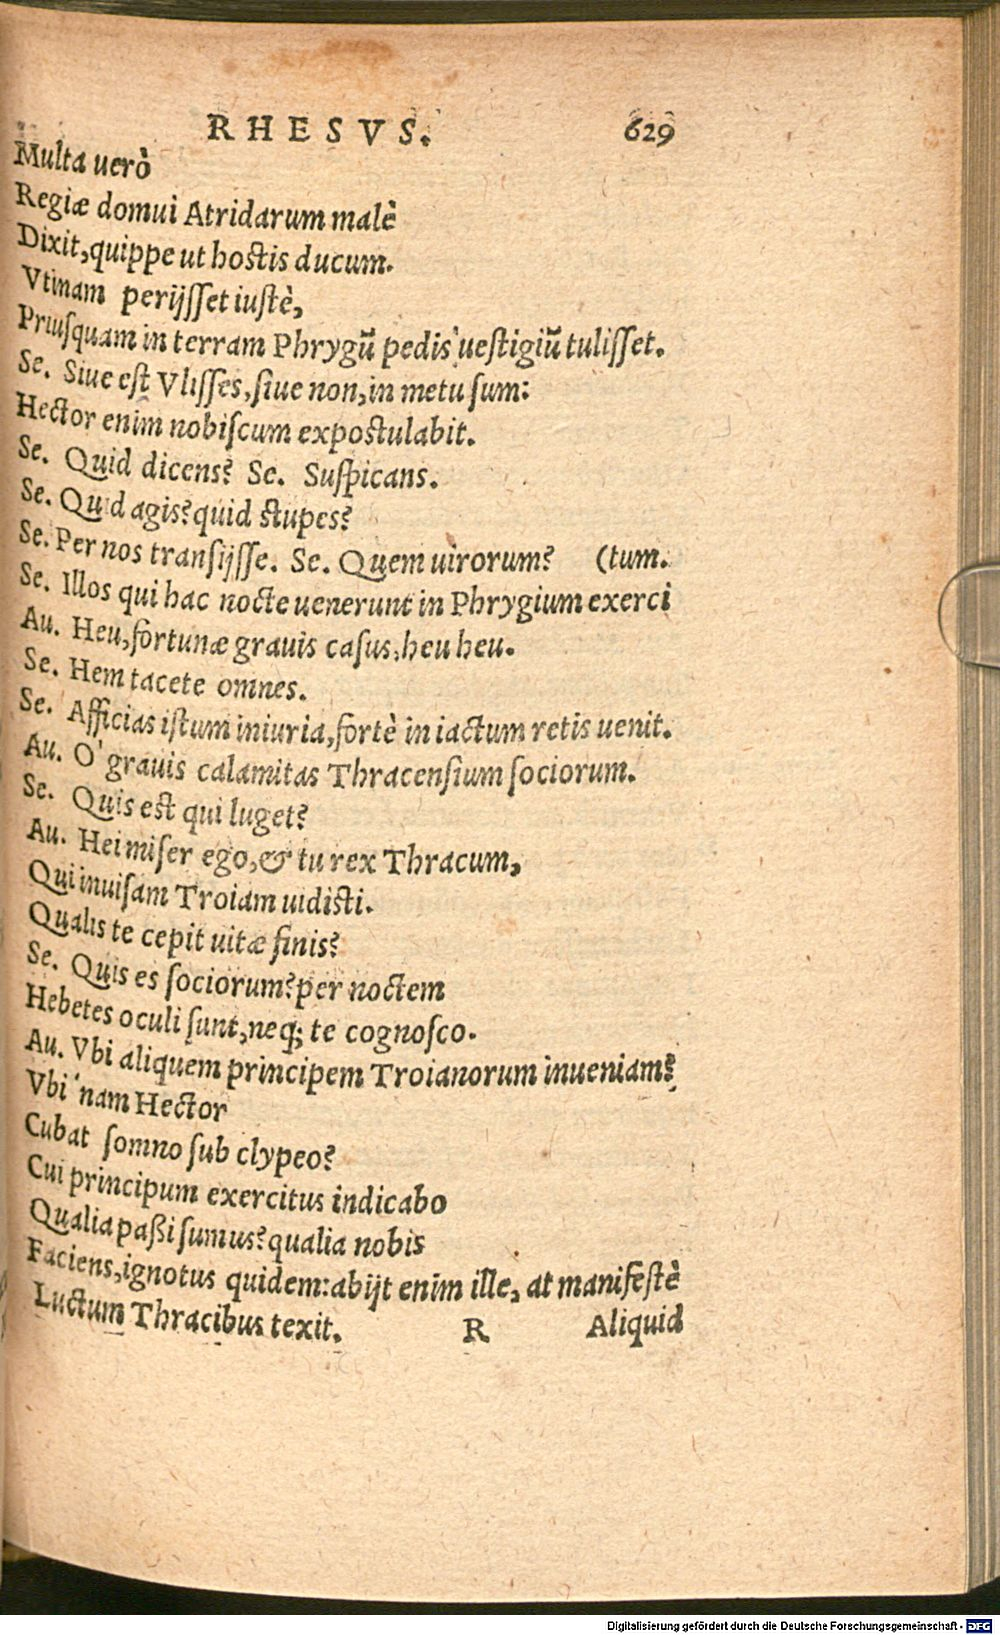 RHESVS. 629
Multa uerò
Regiæ domui Atridarum malè
Dixit, quippe ut hostis ducum.
Vtinam perijsset iustè,
Priusquam in terram Phrygũ pedis uestigiũ tulisset.
Se. Siue est Vlisses, siue non, in metu sum:
Hector enim nobiscum expostulabit.
Se. Quid dicens? Se. Suspicans.
Se. Quid agis? quid stupes?
Se. Per nos transijsse. Se. Quem uirorum? (tum.
Se. Illos qui hac nocte uenerunt in Phrygium exerci
Au. Heu, fortunæ grauis casus, heu heu.
Se. Hem tacete omnes.
Se. Afficias istum iniuria, fortè in iactum retis uenit.
Au. O' grauis calamitas Thracensium sociorum.
Se. Quis est qui luget?
Au. Hei miser ego, & tu rex Thracum,
Qui inuisam Troiam uidisti.
Qualis te cepit uitæ finis?
Se. Quis es sociorum? per noctem
Hebetes oculi sunt, neq; te cognosco.
Au. Vbi aliquem principem Troianorum inueniam?
Vbi'nam Hector
Cubat somno sub clypeo?
Cui principum exercitus indicabo
Qualia paßi sumus? qualia nobis
Faciens, ignotus quidem: abijt enim ille, at manifestè
Luctum Thracibus texit. R Aliquid
Digitalisierung gefördert durch die Deutsche Forschungsgemeinschaft - DFG